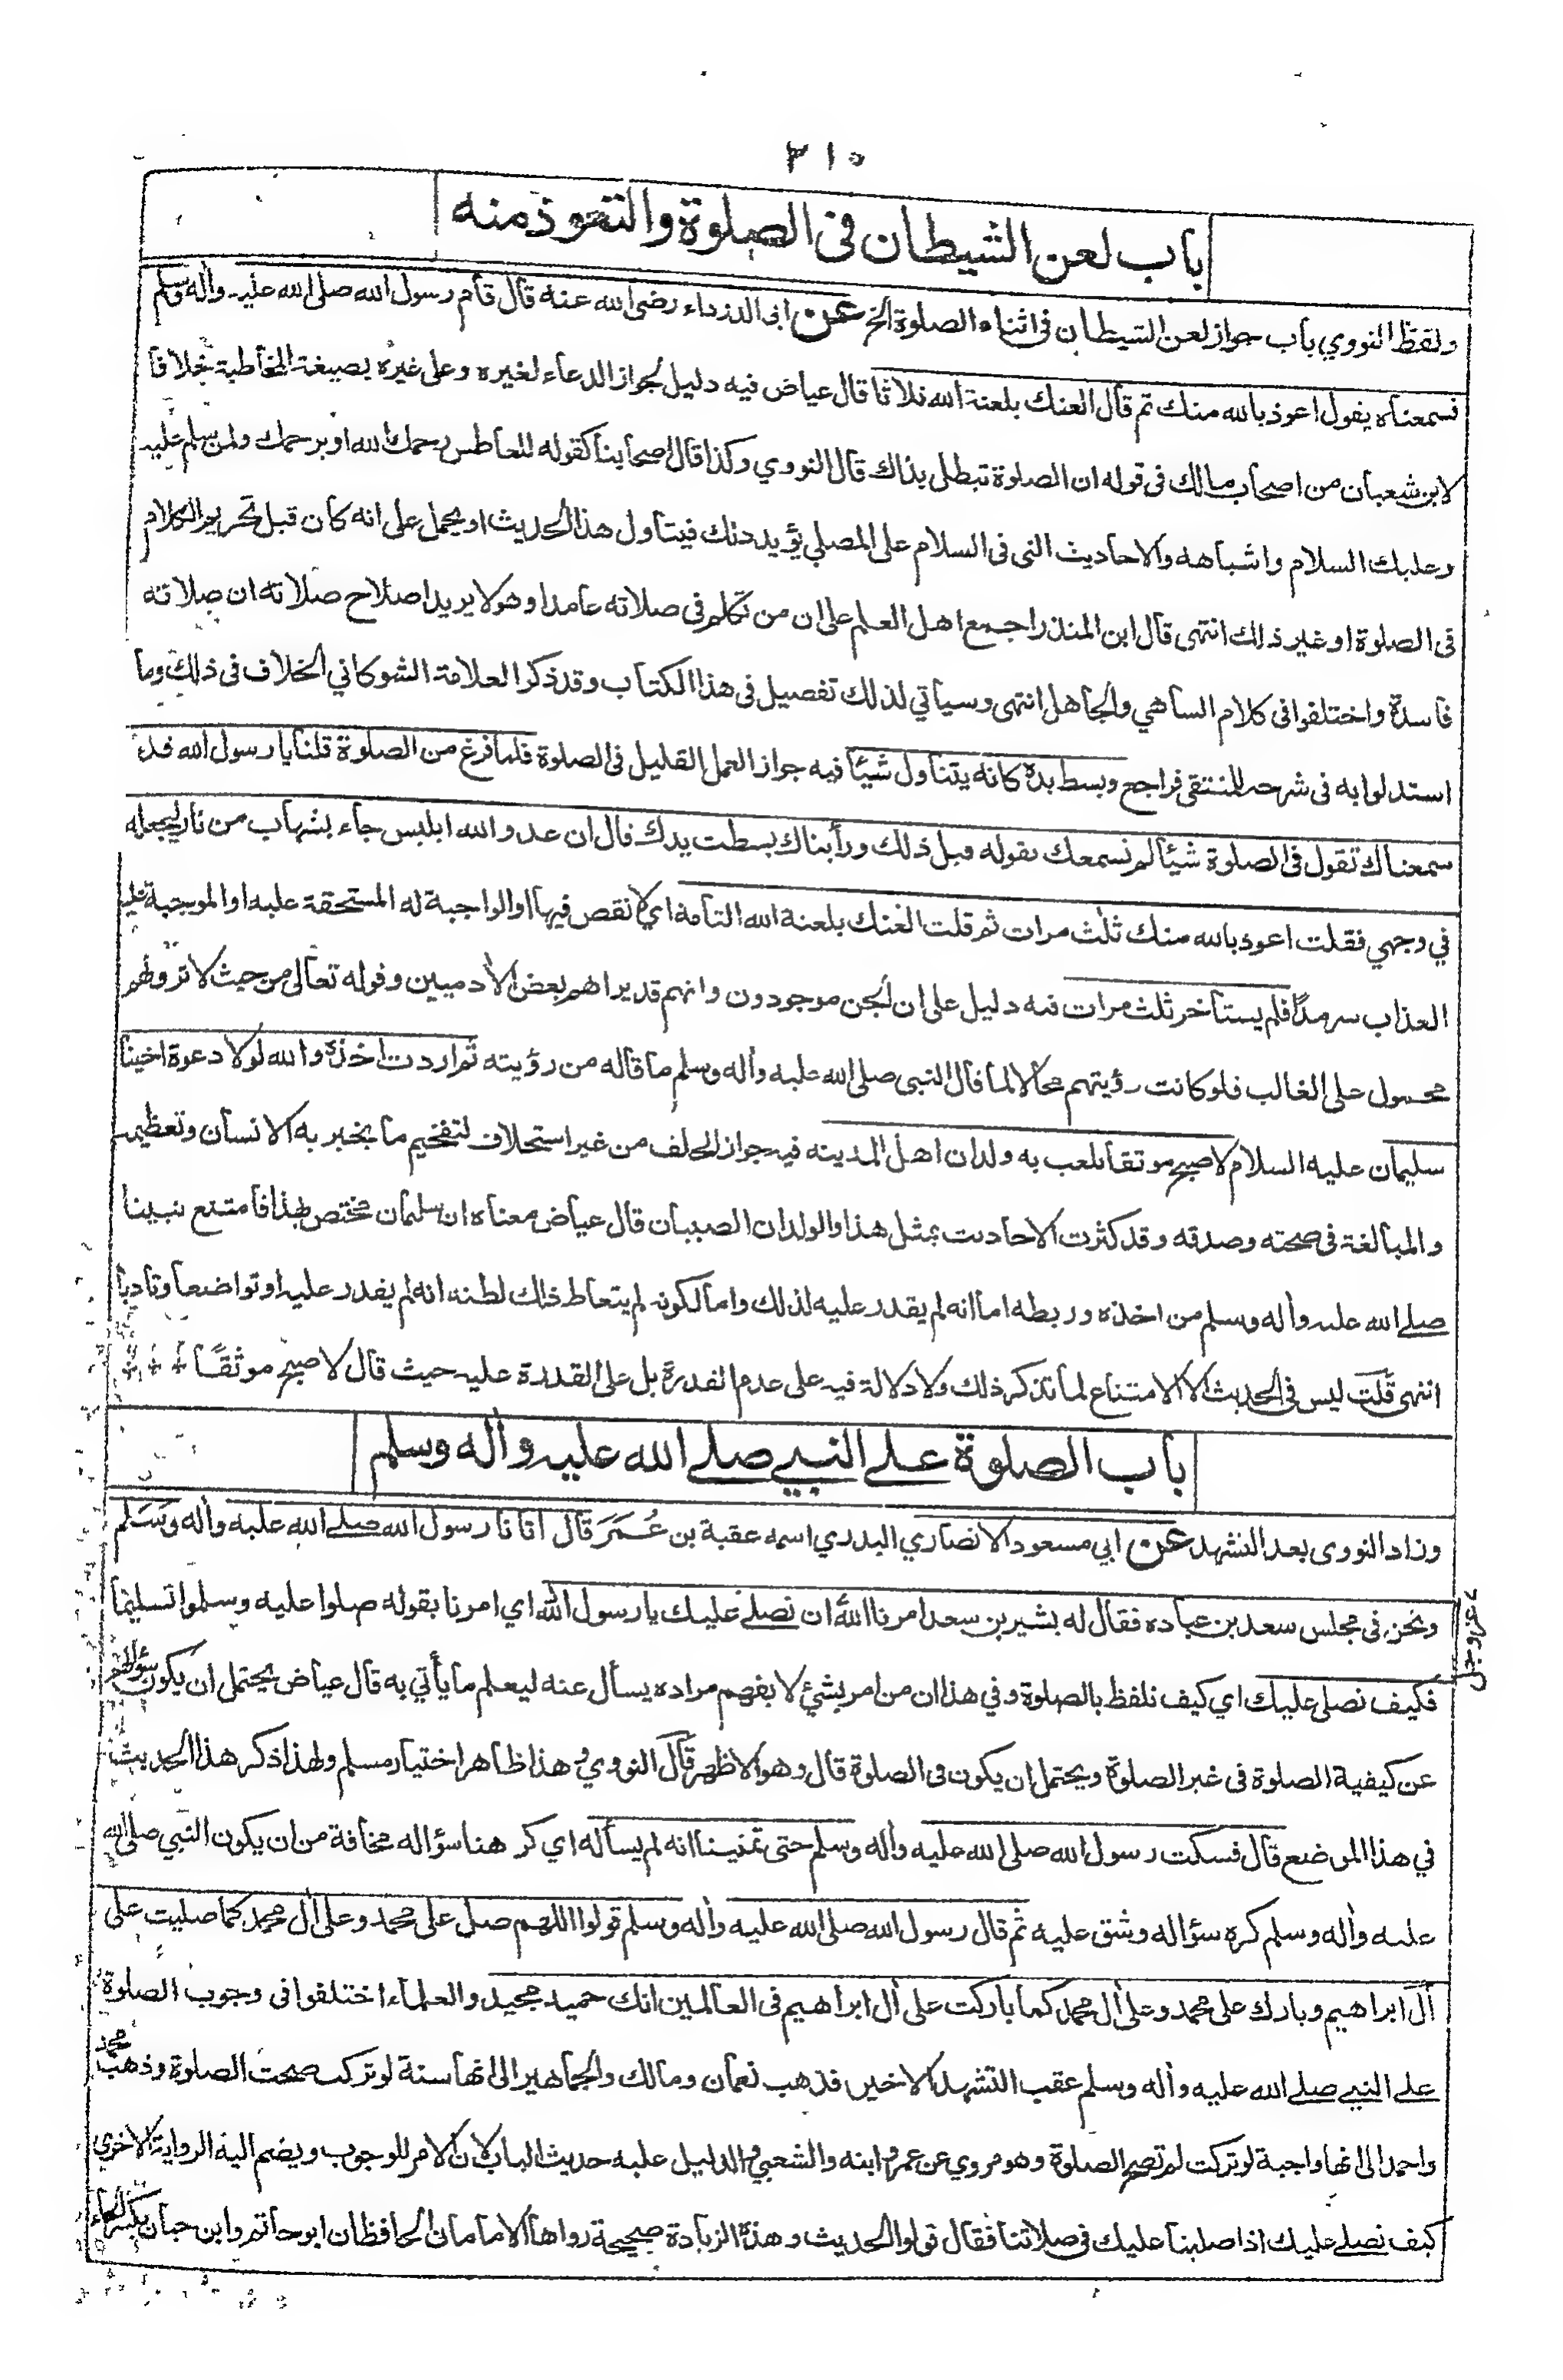 ٣١٥
باب لعن الشيطان فى الصلوة والتعوذ منه
ولفظ النووي باب جواز لعن الشيطان فى اثناء الصلوة الخ عن ابى الدرداء رضى الله عنه قال قام رسول الله صلى الله عليه واله وسلم
فسمعناه يقول اعوذ بالله منك ثم قال العنك بلعنة الله ثلاثا قال عياض فيه دليل لجواز الدعاء لغيره وعلى غيره بصيغة المخاطبة خلافا
لابن شعبان من اصحاب مالك فى قوله ان الصلوة تبطل بذاك قال النووي وكذا قال اصحابنا كقوله للعاطس رحمك الله او يرحمك ولمن سلم عليه
وعليك السلام واشباهه والاحاديث التى فى السلام على المصلي يؤيد ذلك فيتأول هذا الحديث او يحمل على انه كان قبل تحريم الكلام
فى الصلوة او غير ذلك انتهى قال ابن المنذر اجمع اهل العلم على ان من تكلم فى صلاته عامدا وهو لا يريد اصلاح صلاته ان صلاته
فاسدة واختلفوا فى كلام الساهي والجاهل انتهى وسيأتي لذلك تفصيل فى هذا الكتاب وقد ذكر العلامة الشوكاني الخلاف فى ذلك وما
استدلوا به فى شرحه للمنتقى فراجع وبسط يده كانه يتناول شيئا فيه جواز العمل القليل فى الصلوة فلما فرغ من الصلوة قلنا يا رسول الله قد
سمعناك تقول فى الصلوة شيئا لم نسمعك تقوله قبل ذلك ورأيناك بسطت يدك قال ان عدو الله ابليس جاء بشهاب من نار ليجعله
في وجهي فقلت اعوذ بالله منك ثلث مرات ثم قلت العنك بلعنة الله التامة اي لا نقص فيها او الواجبة له المستحقة عليه او الموجبة عليه
العذاب سرمدا فلم يستأخر ثلث مرات فيه دليل على ان الجن موجودون وانهم قد يراهم بعض الأدميين وقوله تعالى من حيث لا ترونهم
محمول على الغالب فلو كانت رؤيتهم محالا لما قال النبى صلى الله عليه واله وسلم ما قاله من رؤيته ثم اردت اخذه والله لولا دعوة اخينا
سليمان عليه السلام لاصبح موثقا يلعب به ولدان اهل المدينه فيه جواز الحلف من غير استحلاف لتفخيم ما يخبر به الانسان وتعظيمه
والمبالغة فى صحته وصدقه وقد كثرت الاحاديث بمثل هذا والولدان الصبيان قال عياض معناه ان سليمان مختص بهذا فامتنع نبينا
صلے الله عليه واله وسلم من اخذه وربطه اما انه لم يقدر عليه لذلك واما لكونه لم يتعاط ذاك لظنه انه لم يقدر عليه او تواضعا وتادبا
انتهى قلت ليس فى الحديث الا الامتناع لما تذكر ذلك ولا دلالة فيه على عدم القدرة بل على القدرة عليه حيث قال لاصبح موثقا
باب الصلوة على النبي صلے الله عليه واله وسلم
وزاد النووى بعد التشهد عن ابي مسعود الانصاري البدري اسمه عقبة بن عُمَرَ قال اتانا رسول الله صلے الله عليه واله وسلم
ونحن فى مجلس سعد بن عباده فقال له بشير بن سعد امرنا الله ان نصلے عليك يا رسول الله اي امرنا بقوله صلوا عليه وسلموا تسليما
عز وجل
فكيف نصلى عليك اي كيف نلفظ بالصلوة وفي هذا ان من امر بشئ لا يفهم مراده يسأل عنه ليعلم ما يأتي به قال عياض يحتمل ان يكون سؤالهم
عن كيفية الصلوة فى غير الصلوة ويحتمل ان يكون فى الصلوة قال وهو الاظهر قال النووي وهذا ظاهر اختيار مسلم ولهذا ذكر هذا الحديث
في هذا الموضع قال فسكت رسول الله صلى الله عليه واله وسلم حتى تمنينا انه لم يسأله اي كرهنا سؤاله مخافة من ان يكون النبي صلى الله
عليه واله وسلم كره سؤاله وشق عليه ثم قال رسول الله صلى الله عليه واله وسلم قولوا اللهم صل على محمد وعلى ال محمد كما صليت على
ال ابراهيم وبارك على محمد وعلى ال محمد كما باركت على ال ابراهيم فى العالمين انك حميد مجيد والعلماء اختلفوا فى وجوب الصلوة
على النبي صلے الله عليه واله وسلم عقب التشهد الاخير فذهب نعمان ومالك والجماهير الى انها سنة لو تركت صحت الصلوة وذهب محمد
واحمد الى انها واجبة لو تركت لم تصح الصلوة وهو مروي عن عمر وابنه والشعبي والدليل عليه حديث الباب لان الامر للوجوب ويضم اليه الرواية الاخرى
كيف نصلے عليك اذا صلينا عليك فى صلاتنا فقال قولوا الحديث وهذه الزيادة صحيحة رواها الامامان الحافظان ابو حاتم وابن حبان بكسر الحاء